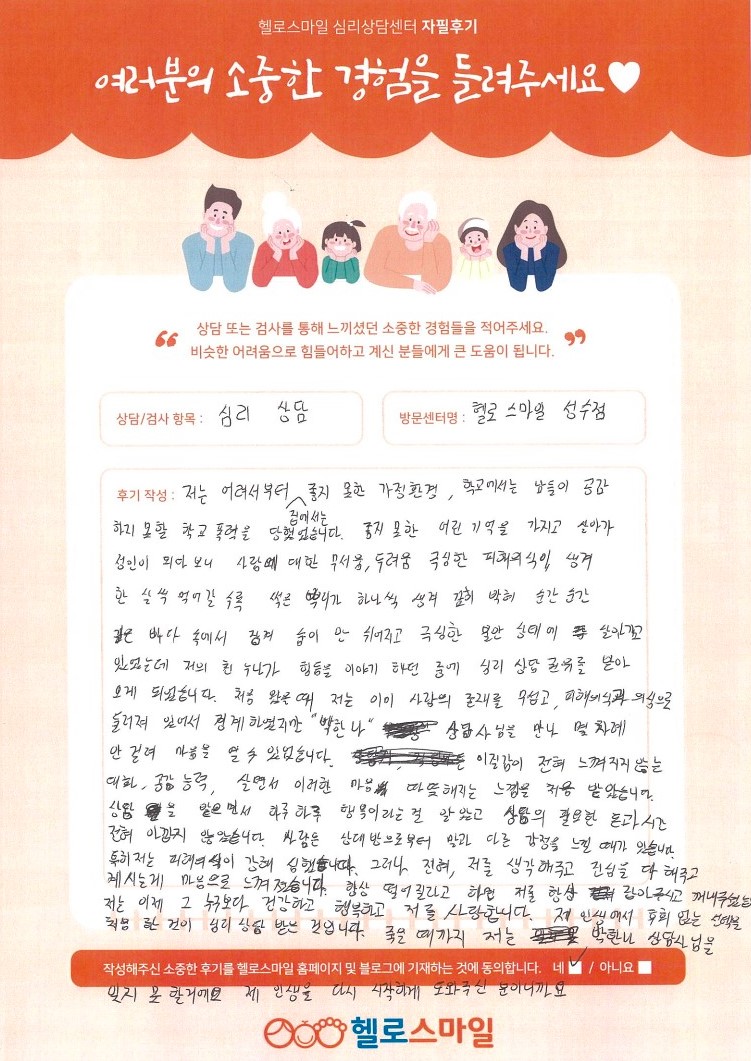 헬로스마일 심리상담센터 자필후기
여러분의 소중한 경험을 들려주세요♥
“ 상담 또는 검사를 통해 느끼셨던 소중한 경험들을 적어주세요. ”
비슷한 어려움으로 힘들어하고 계신 분들에게 큰 도움이 됩니다.
상담/검사 항목 : 심리 상담
방문센터명 : 헬로 스마일 성수점
후기 작성 : 저는 어려서부터 좋지 못한 가정환경, 학교에서는 남들이 공감
집에서는
하지 못할 학교 폭력을 당했었습니다. 좋지 못한 어린 기억을 가지고 살아가
성인이 되다 보니 사람에 대한 무서움, 두려움 극심한 피해의식이 생겨
한 살 씩 먹어갈 수록 썩은 뿌리가 하나씩 생겨 깊히 박혀 순간 순간
깊은 바다 속에서 잠겨 숨이 안 쉬어지고 극심한 불안 상태에 살아가고
있었는데 저의 친 누나가 힘듦을 이야기 하던 중에 심리 상담 권유를 받아
오게 되었습니다. 처음 왔을 때 저는 이미 사람의 존재를 무섭고, 피해의식과 의심으로
둘러져 있어서 경계 하였지만 "박한나" 상담사님을 만나 몇 차례
안 걸려 마음을 열 수 있었습니다. 이질감이 전혀 느껴지지 않는
대화, 공감 능력, 살면서 이러한 마음 따뜻해지는 느낌을 처음 받았습니다.
상담을 받으면서 하루 하루 행복이라는 걸 알았고 상담의 필요한 돈과 시간
전혀 아깝지 않았습니다. 사람은 상대방으로부터 말과 다른 감정을 느낄 때가 있습니다.
특히 저는 피해의식이 강해 심했습니다. 그러나, 전혀, 저를 생각해주고 진심을 다 해주고
계시는게 마음으로 느껴졌습니다. 항상 떨어질라고 하면 저를 항상 잡아주시고 꺼내주셨습니다
저는 이제 그 누구보다 건강하고 행복하고 저를 사랑합니다. 제 인생에서 후회 없는 선택을
처음 한 것이 심리 상담 받는 것입니다. 죽을 때까지 저는 박한나 상담사님을
작성해주신 소중한 후기를 헬로스마일 홈페이지 및 블로그에 기재하는 것에 동의합니다. 네 ✓ / 아니요
잊지 못 할거에요 제 인생을 다시 시작하게 도와주신 분이니까요
헬로스마일